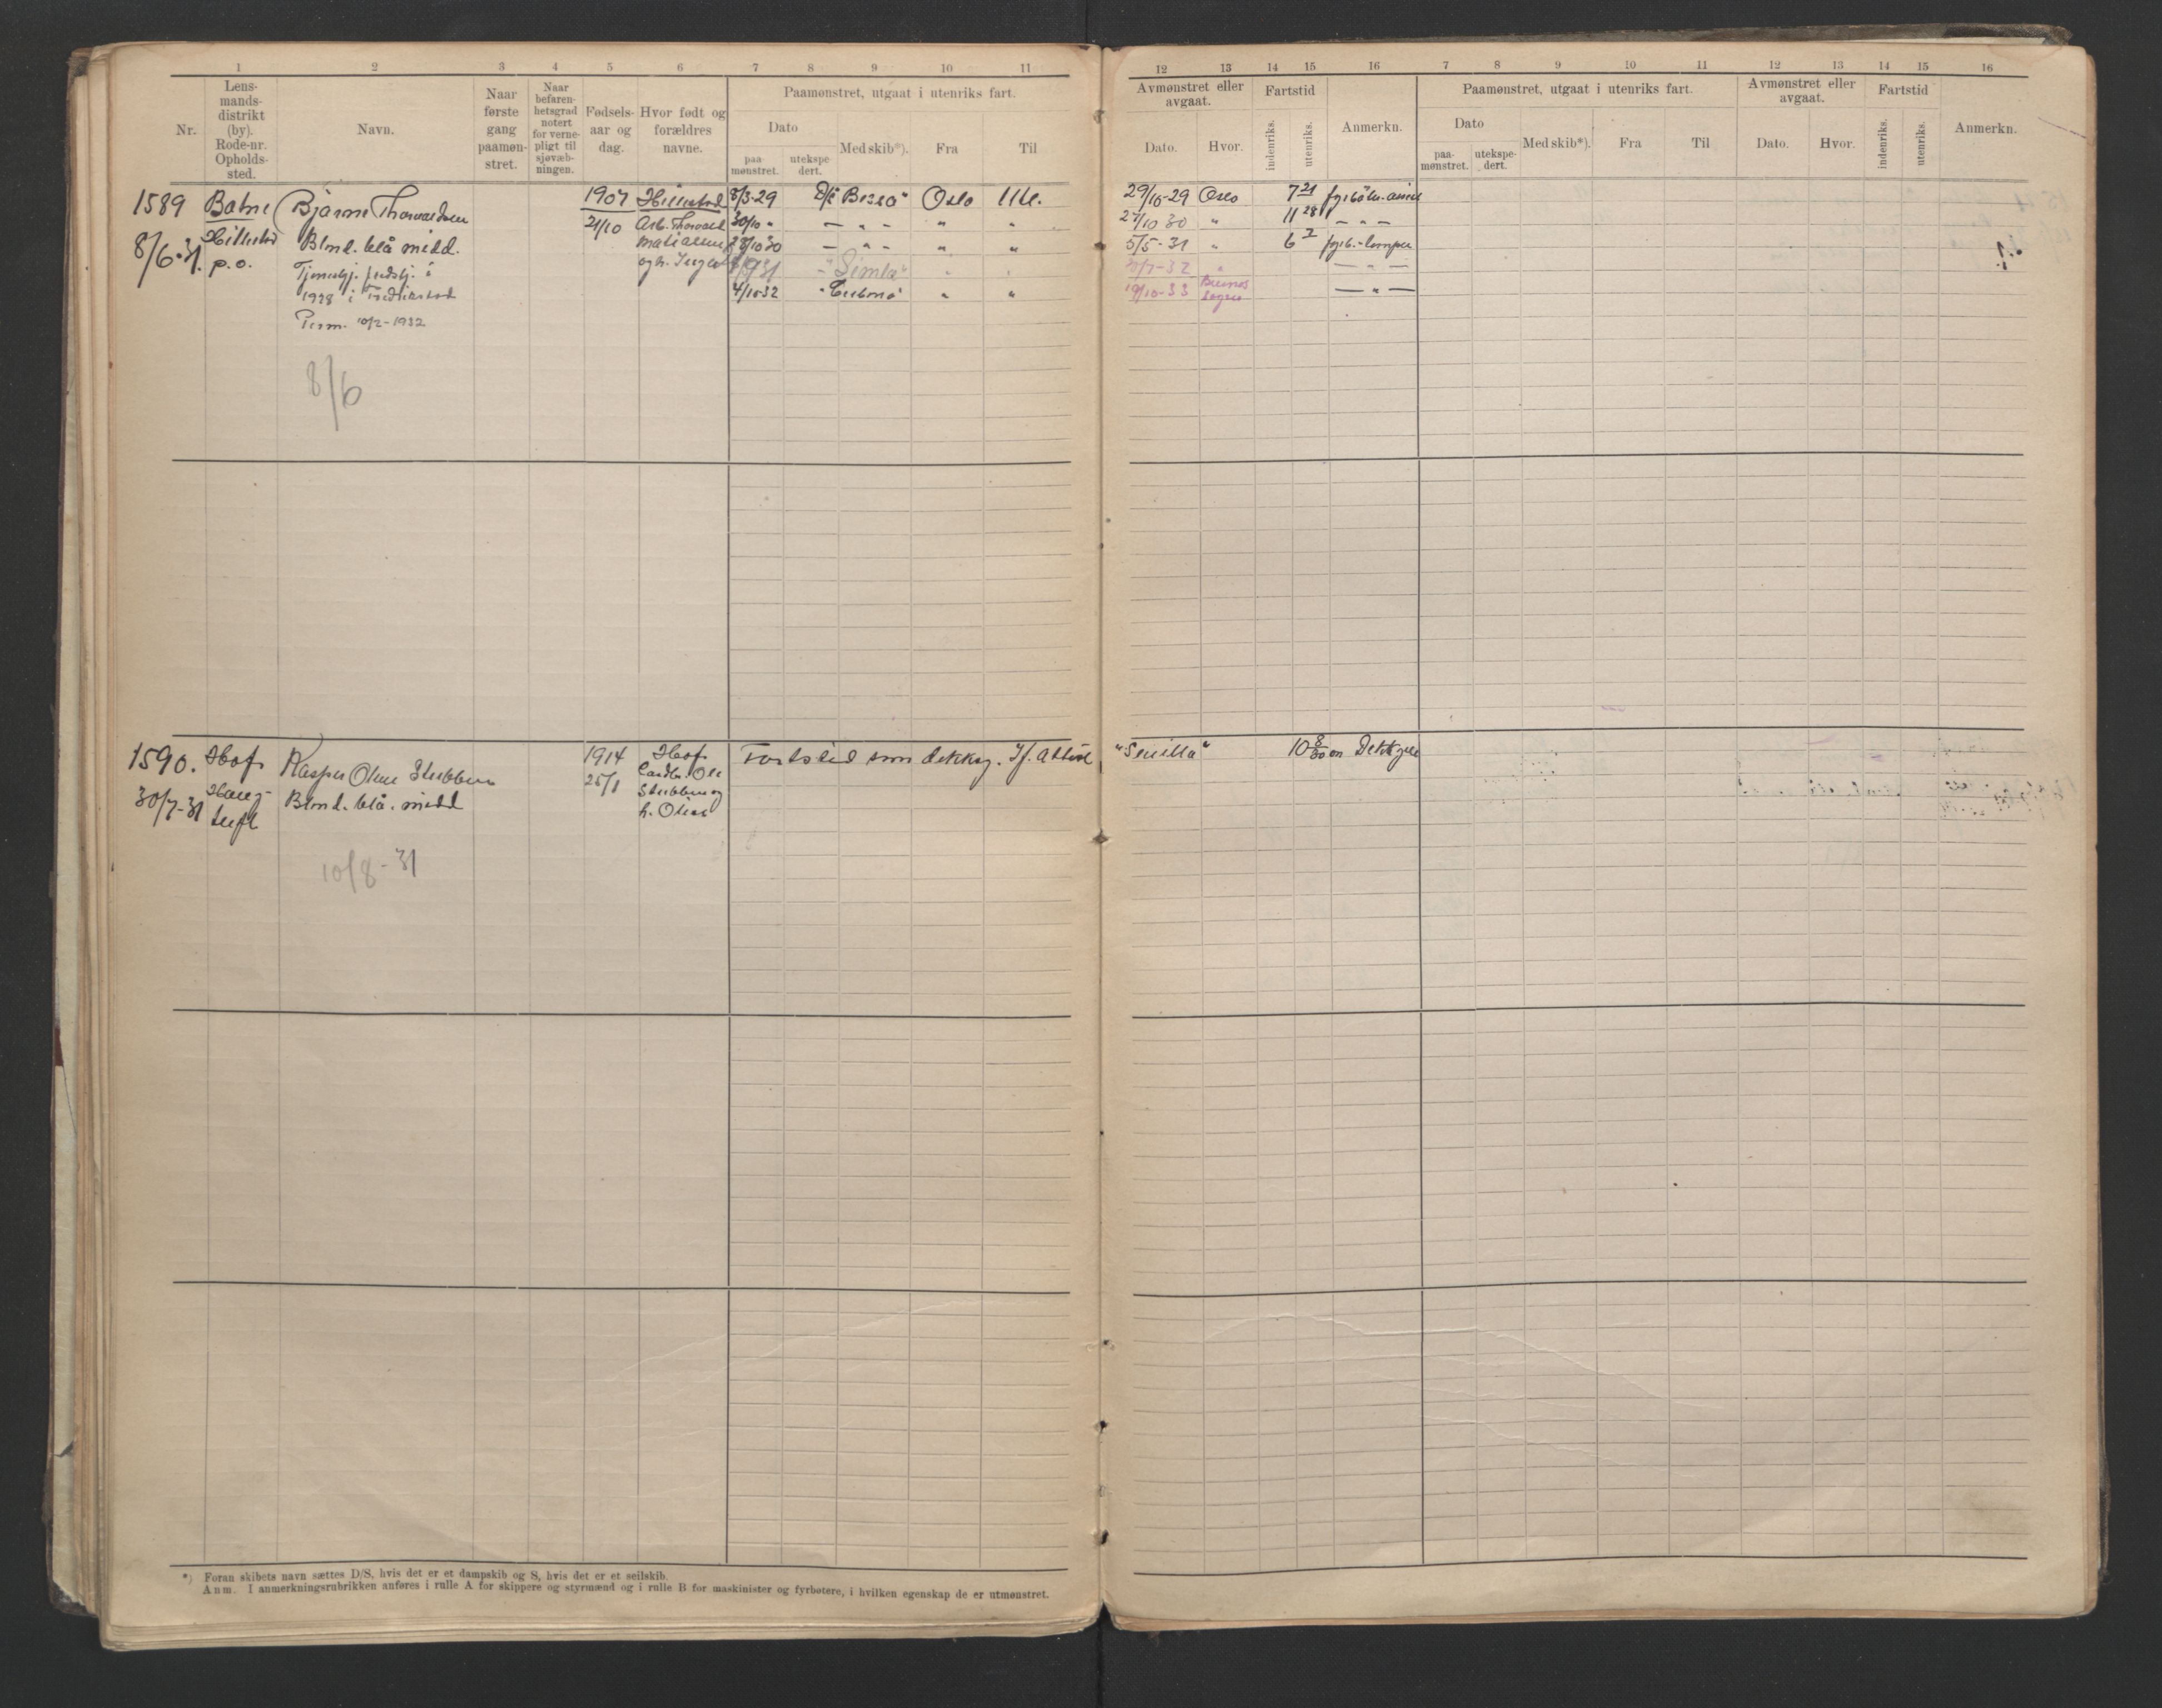 1 2 3 4 5 6 7 8 9 10 11
Nr.
Lens-
mands-
distrikt
(by).
Rode-nr.
Opholds-
sted.
Navn.
Naar
første
gang
paamøn-
stret.
Naar
befaren-
hetsgrad
notert
for verne-
pligt til
sjøvæb-
ningen.
Fødsels-
aar og
dag.
Hvor født og
forældres
navne.
Paamønstret, utgaat i utenriks fart.
Dato
paa-
mønstret.
utekspe-
dert.
Med skib*).
Fra
Til
1589 Botne Bjarne Thorvaldsen 1907 Hillestad 8/3-29 D/S Bessa" Oslo Utl.
Hillestad 21/10 Arb. Thorvald 30/10 " — " — " "
8/6-31. p.o. Blmd. blå midd. Matisen 28/10 30 — " — " "
Tjenestgj. i og h.
"Simla"
1928 i Fredrikstad 4/10-32 " "
Perm. 10/2-1932
8/6
1590. Hof Kasper Olsen Stubben 1914 Hof Fartstid som dekksg. If. attest
30/7-31 Blmd. blå. midd 25/1 Ole
Stubben og
h.
10/8-31
*) Foran skibets navn sættes D/S, hvis det er et dampskib og S, hvis det er et seilskib.
Anm. I anmerkningsrubrikken anføres i rulle A for skippere og styrmænd og i rulle B for maskinister og fyrbøtere, i hvilken egenskap de er utmønstret.
12 13 14 15 16 7 8 9 10 11 12 13 14 15 16
Avmønstret eller
avgaat.
Dato.
Hvor.
Fartstid
indenriks.
utenriks.
Anmerkn.
Paamønstret, utgaat i utenriks fart.
Dato
paa-
mønstret.
utekspe-
dert.
Med skib*).
Fra
Til
Avmønstret eller
avgaat.
Dato.
Hvor.
Fartstid
indenriks.
utenriks.
Anmerkn.
29/10-29 Oslo 7 21
27/10 30 " 11 28 — " —
5/5-31 " 6 7 fyrb.-lemper
30/7-32 " — " —
19/10-33 Buenos — " —
10 8/30